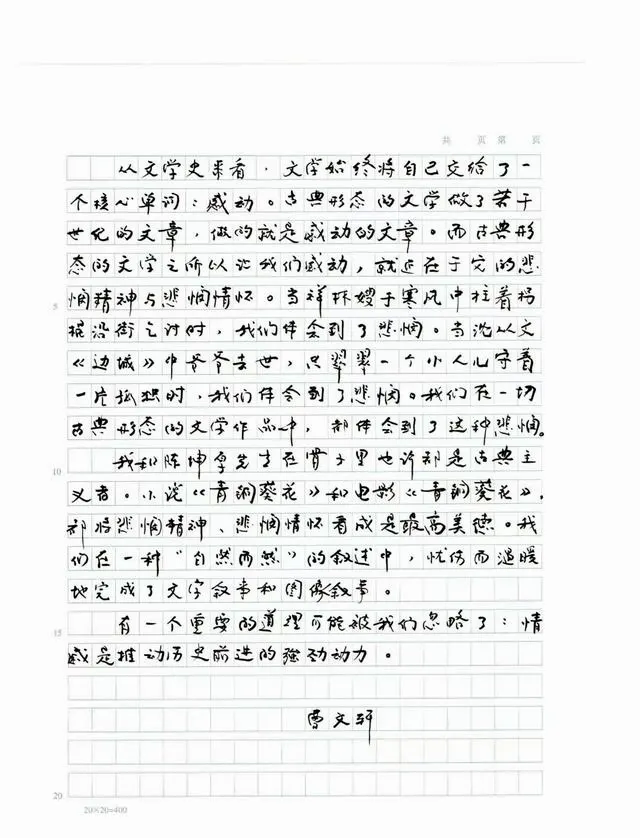 共 页 第 页
从文学史来看，文学始终将自己交给了一
个核心单词：感动。古典形态的文学做了若干
世纪的文章，做的就是感动的文章。而古典形
态的文学之所以让我们感动，就正在于它的悲
5
悯精神与悲悯情怀。当祥林嫂于寒风中拄着拐
棍沿街乞讨时，我们体会到了悲悯。当沈从文
《边城》中爷爷去世，只翠翠一个小人儿守着
一片孤独时，我们体会到了悲悯。我们在一切
古典形态的文学作品中，都体会到了这种悲悯。
10
我和陈坤厚先生在骨子里也许都是古典主
义者。小说《青铜葵花》和电影《青铜葵花》，
都将悲悯精神、悲悯情怀看成是最高美德。我
们在一种“自然而然”的叙述中，忧伤而温暖
地完成了文字叙事和图像叙事。
15
有一个重要的道理可能被我们忽略了：情
感是推动历史前进的强劲动力。
曹文轩
20
20×20=400